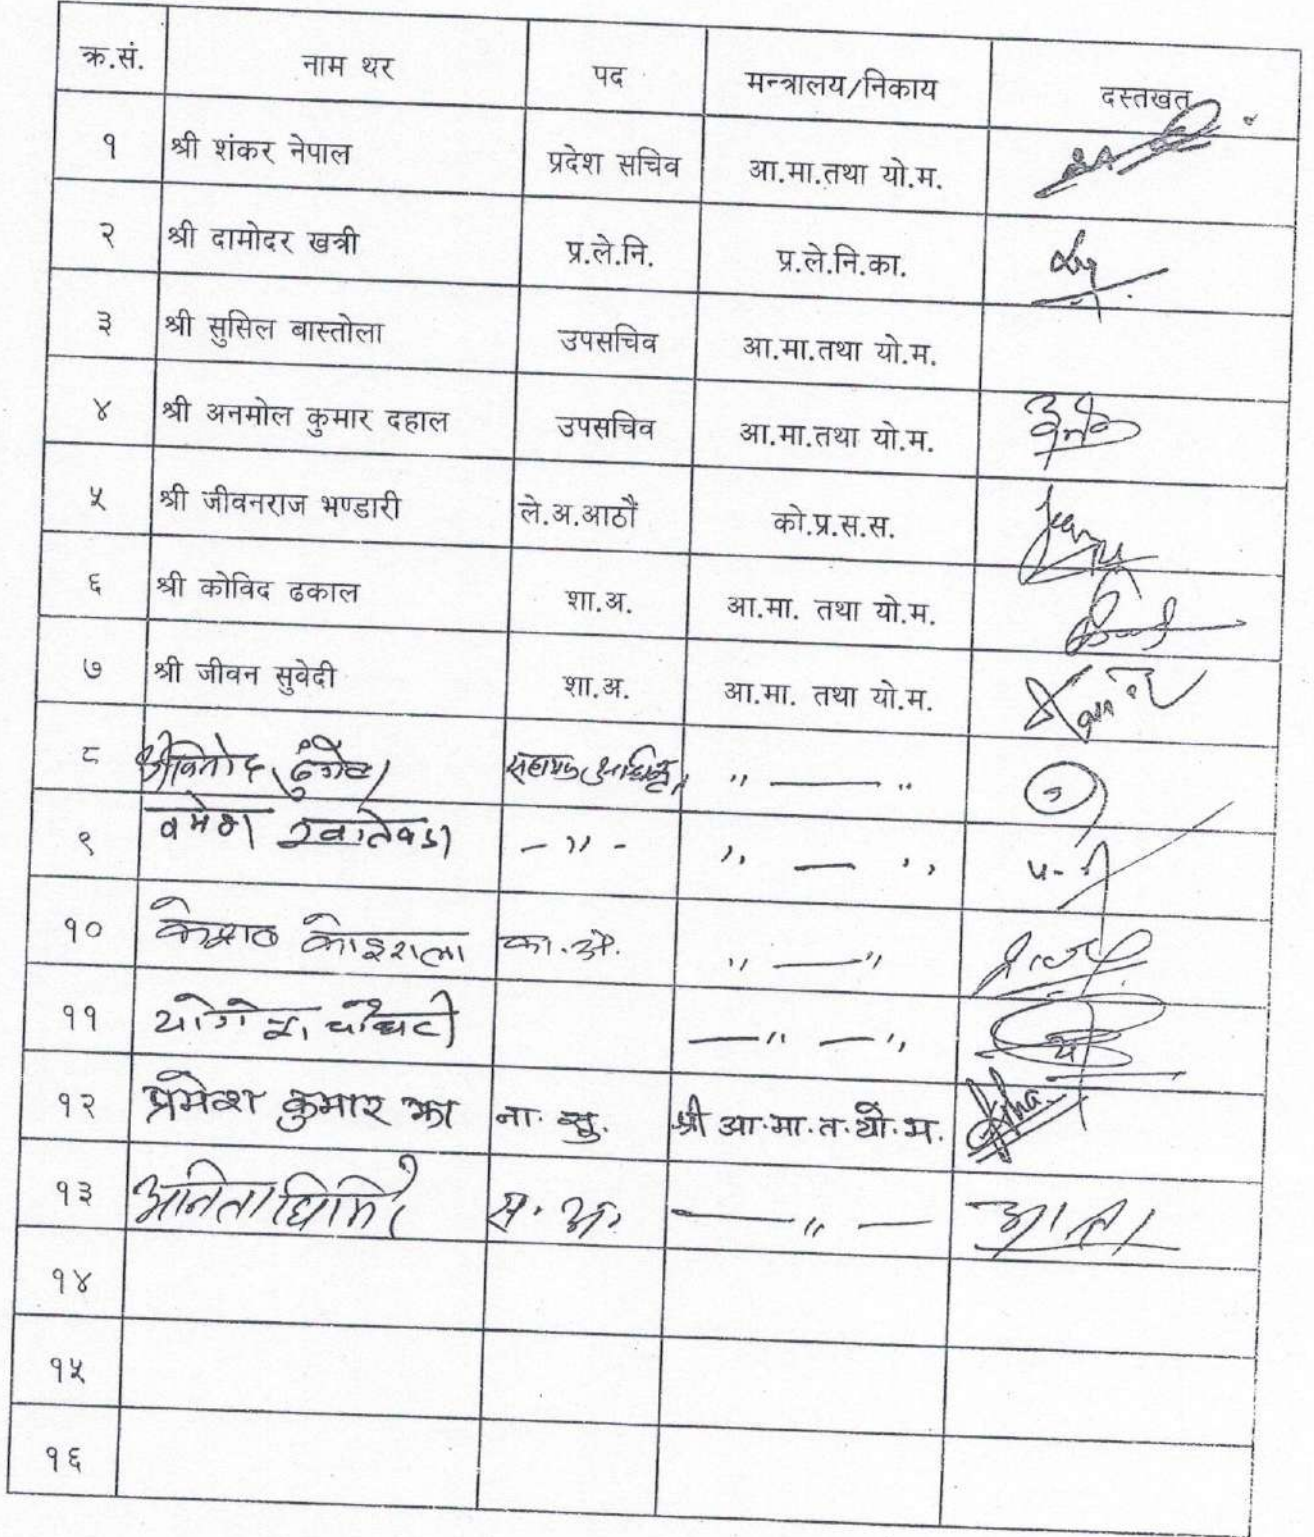 क्र.सं. नाम थर पद मन्त्रालय/निकाय दस्तखत
१ श्री शंकर नेपाल प्रदेश सचिव आ.मा.तथा यो.म.
२ श्री दामोदर खत्री प्र.ले.नि. प्र.ले.नि.का.
३ श्री सुसिल बास्तोला उपसचिव आ.मा.तथा यो.म.
४ श्री अनमोल कुमार दहाल उपसचिव आ.मा.तथा यो.म.
५ श्री जीवनराज भण्डारी ले.अ.आठौं को.प्र.स.स.
६ श्री कोविद ढकाल शा.अ. आ.मा. तथा यो.म.
७ श्री जीवन सुवेदी शा.अ. आ.मा. तथा यो.म.
८ " — "
९ - " - " — "
१० का.अ. " — "
११ — " — "
१२ कुमार झा ना.सु. श्री आ.मा.त.यो.म. Jha
१३ अनिता स.अ. — " —
१४
१५
१६